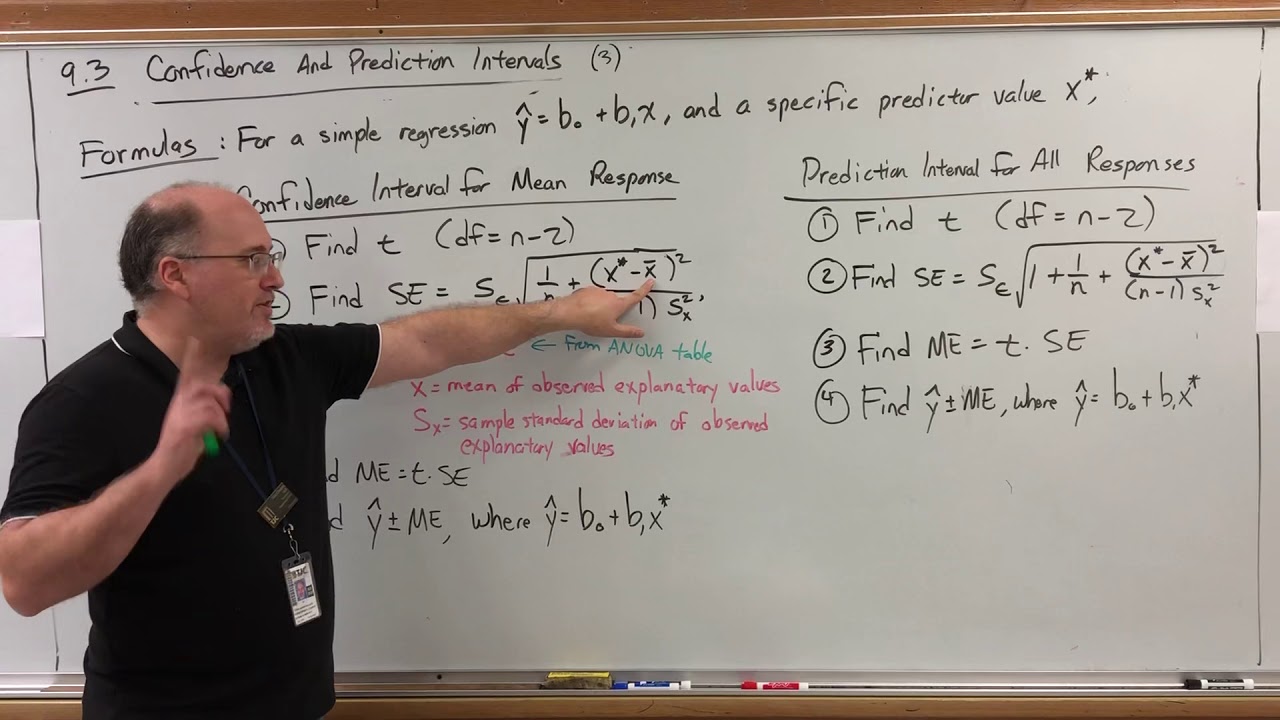 9.3 Confidence And Prediction Intervals (3)
Formulas : For a simple regression ŷ = b₀ + b₁x, and a specific predictor value x*,
Confidence Interval for Mean Response
Find t (df = n-2)
Find SE = Sϵ √(1/n + (x* - x̄)² / 1) Sₓ²,
← from ANOVA table
x = mean of observed explanatory values
Sₓ = sample standard deviation of observed
explanatory values
ME = t · SE
ŷ ± ME, where ŷ = b₀ + b₁x*
Prediction Interval for All Responses
① Find t (df = n-2)
② Find SE = Sϵ √(1 + 1/n + (x* - x̄)² / (n-1) Sₓ²)
③ Find ME = t · SE
④ Find ŷ ± ME, where ŷ = b₀ + b₁x*